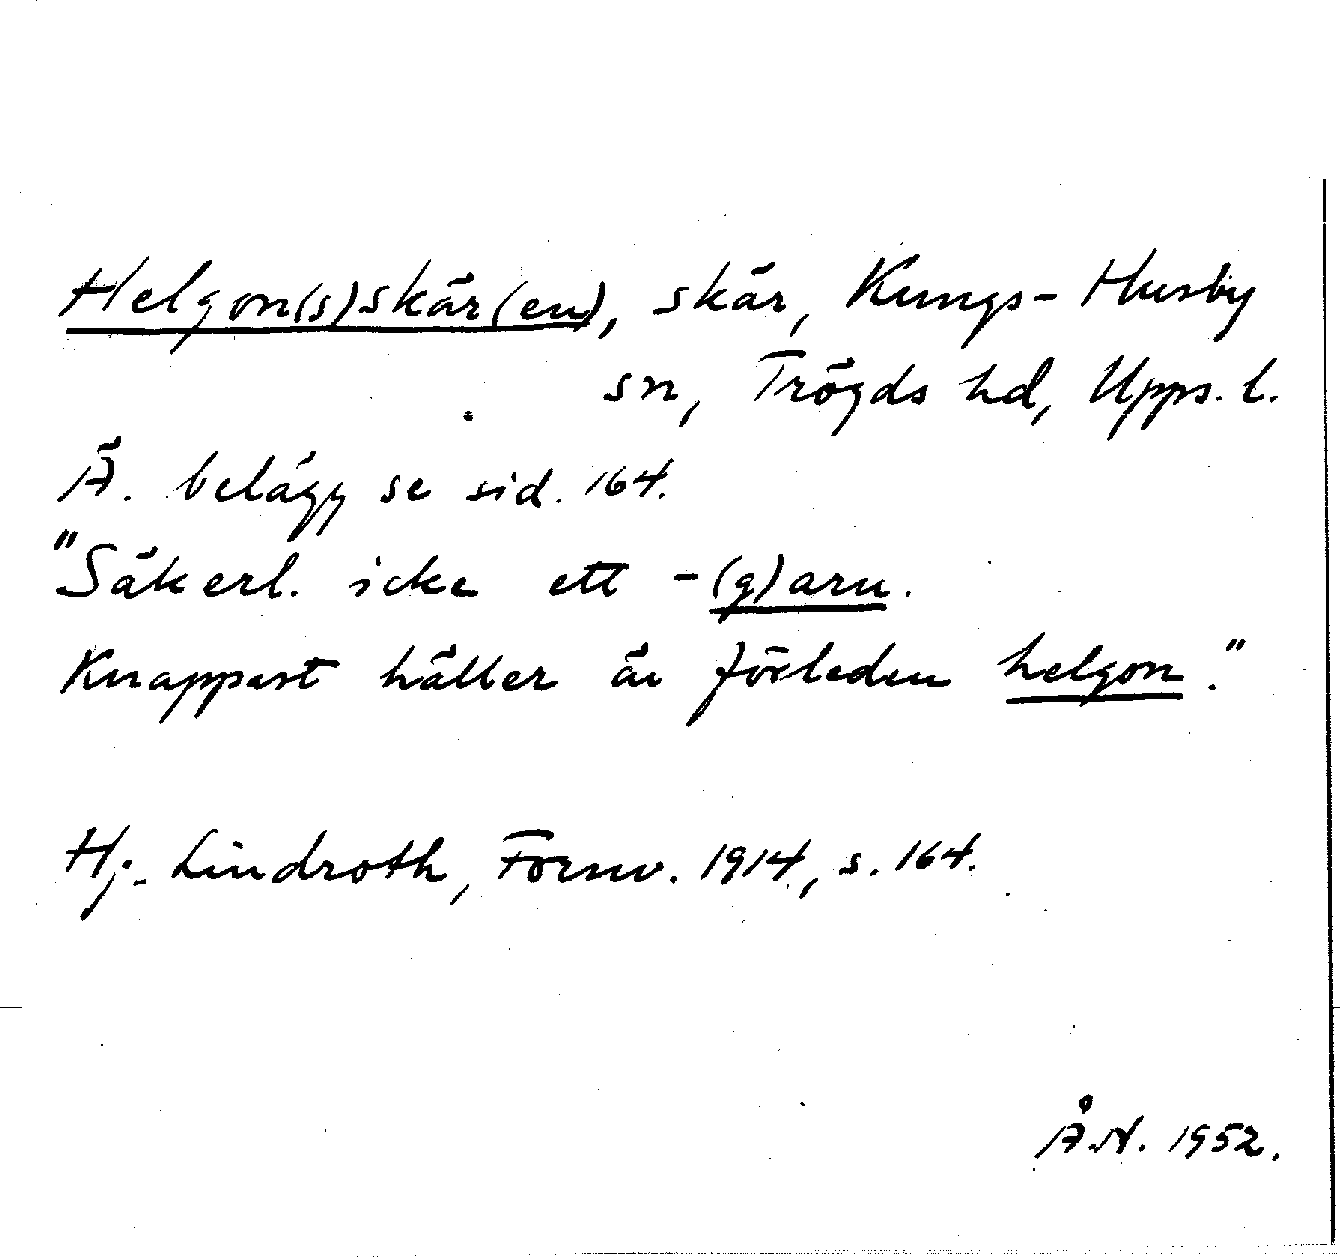 Helgon(s)skär(en), skär, Kungs-Husby
sn, Trögds hd, Upps. l.
Ä. belägg se sid. 164.
"Säkerl. icke ett -(g)arn.
Knappast häller är förleden helgon."
Hj. Lindroth, Fornv. 1914, s. 164.
Å.N. 1952.